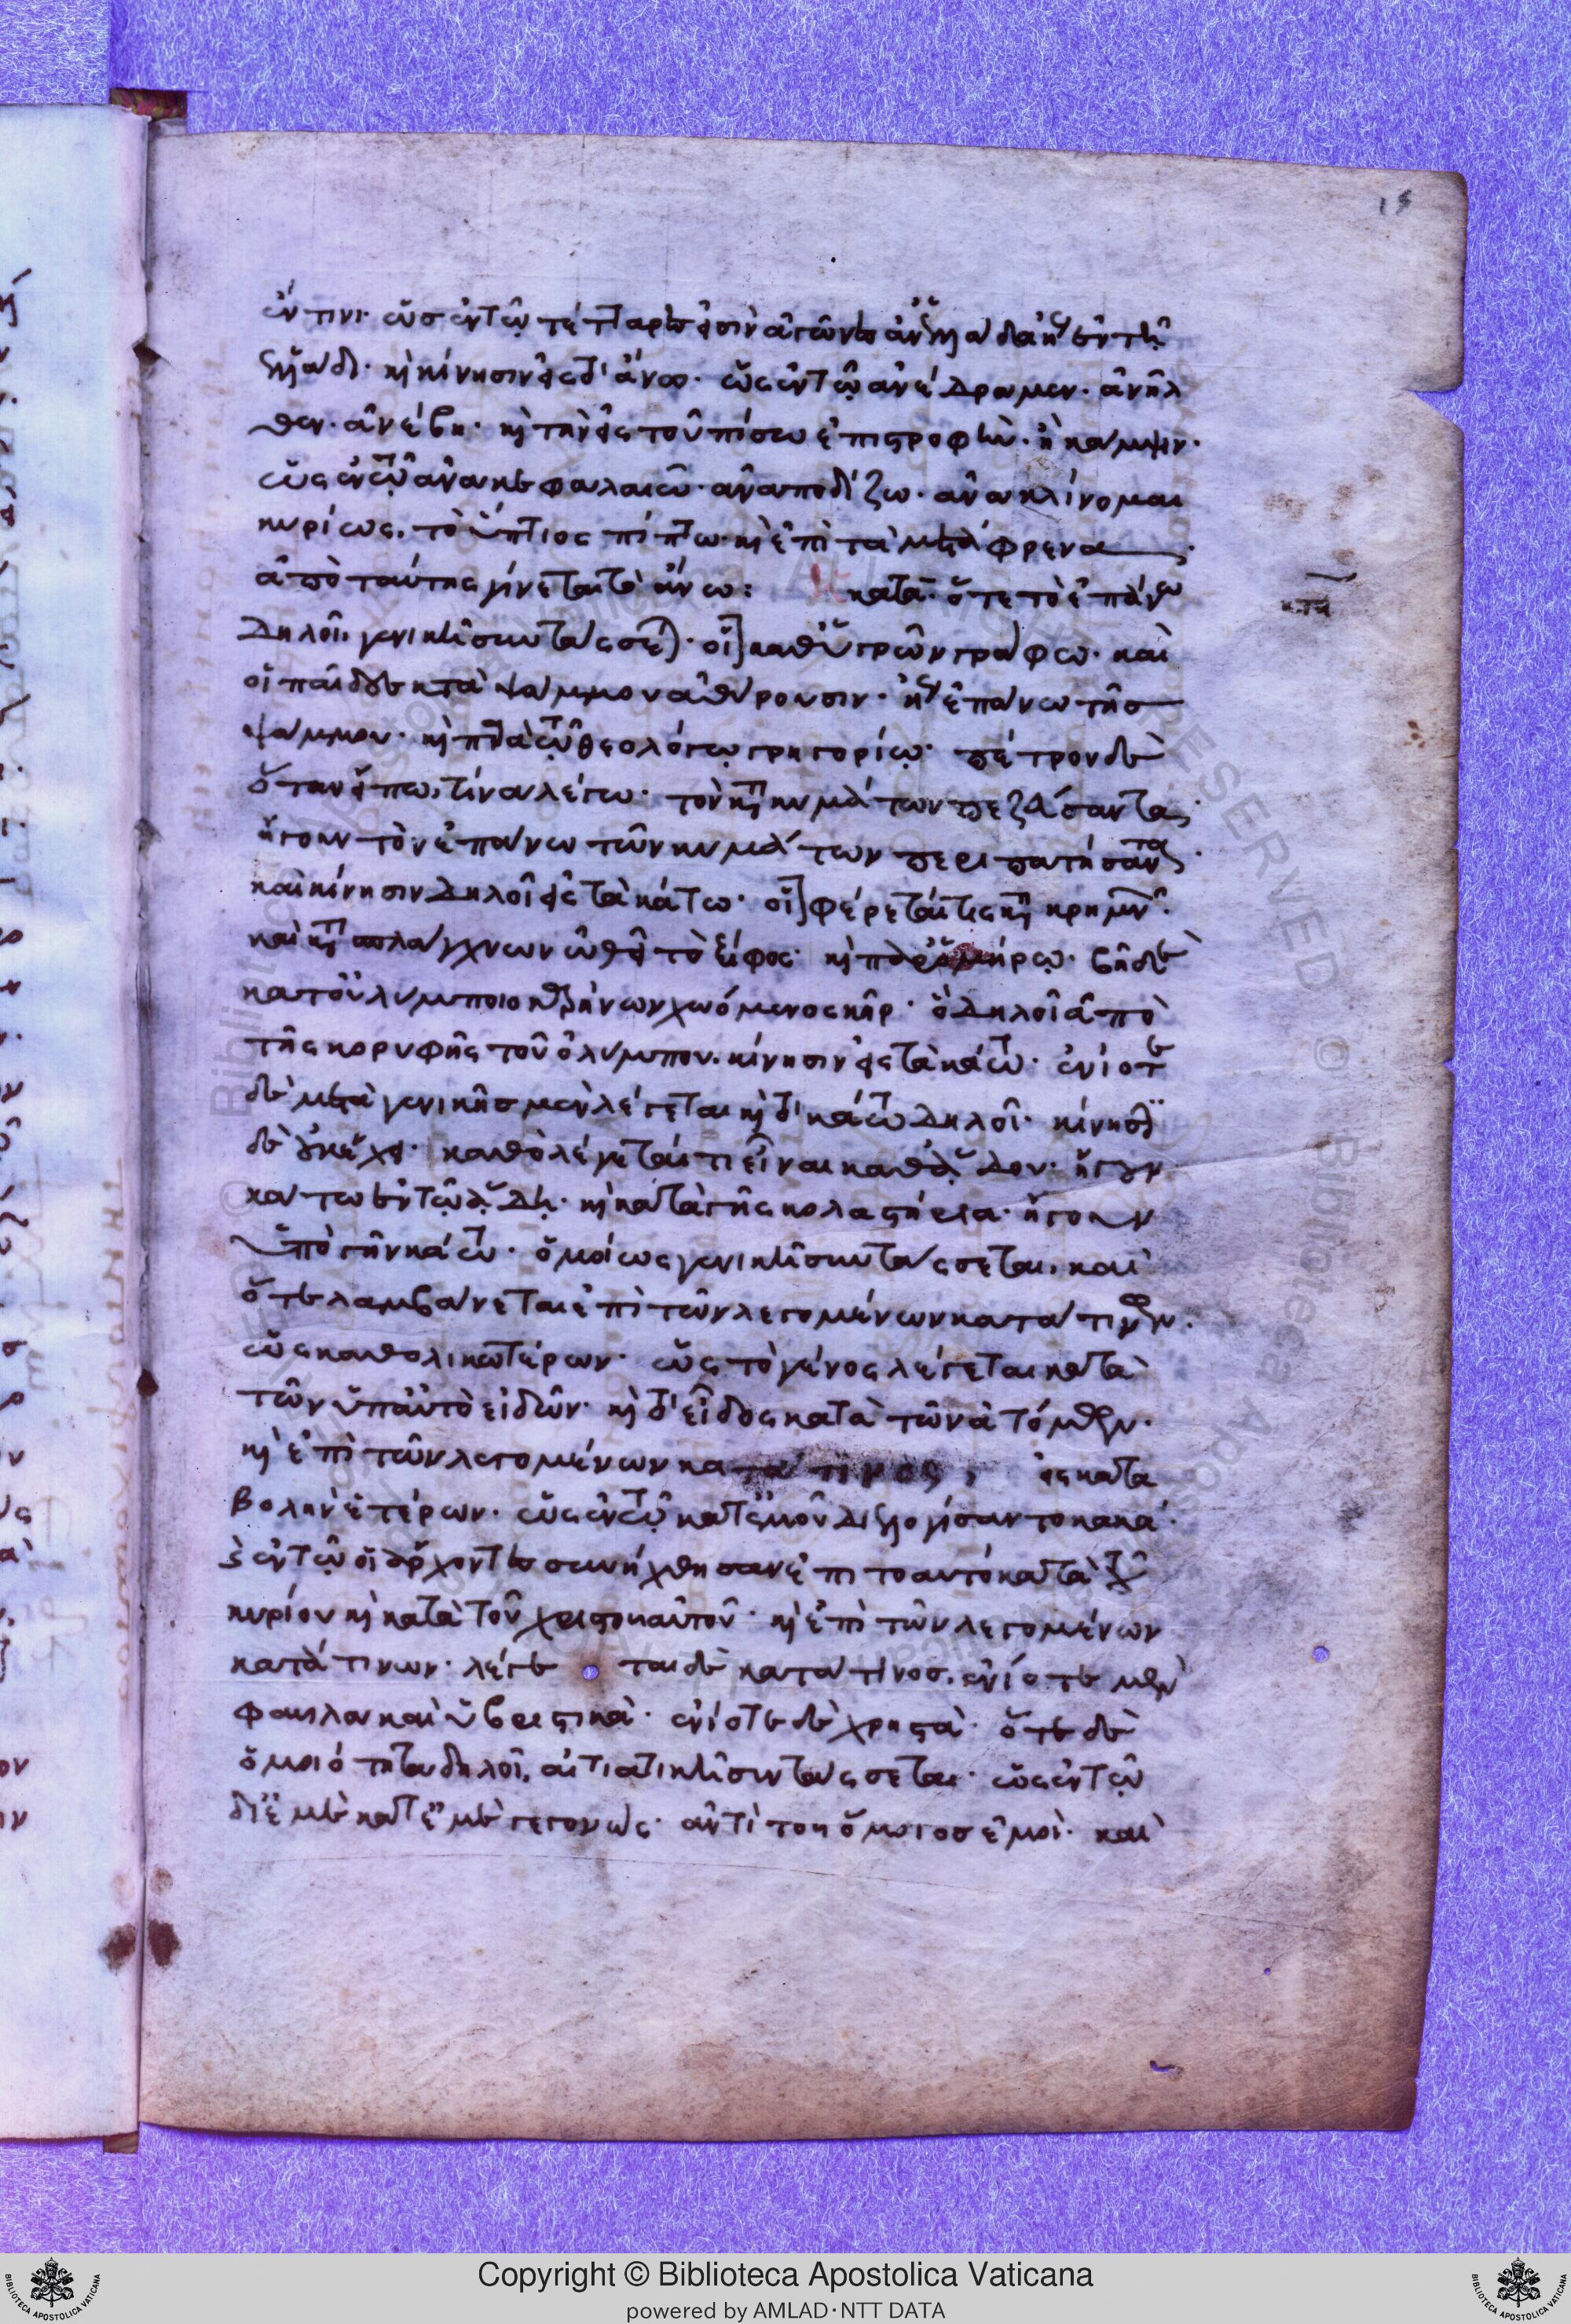 15
ἔν τινι· ὡς ἐν τῷ τέτταρες εἰσὶν ἀγῶνες ἀν' Ἑλλάδα ἤγουν ἐν τῇ
Ἑλλάδι· καὶ κίνησιν εἰς τὰ ἄνω· ὡς ἐν τῷ ἀνέδραμεν· ἀνῆλ
θεν· ἀνέβη· καὶ τὴν εἰς τοὐπίσω ἐπιστροφὴν· ἢ κάμψιν·
ὡς ἐν τῷ ἀνακεφαλαιῶ· ἀναποδίζω· ἀνακλίνομαι
κυρίως, τὸ ὕπτιος πίπτω καὶ ἐπὶ τὰ μετάφρενα
ἀπὸ ταύτης γίνεται τὸ ἄνω: κατὰ· ὅτε τὸ ἐπάνω
κατὰ
δηλοῖ, γενικῇ συντάσσεται· οἷον καθ' ὑγρῶν γράφω· καὶ
οἱ παῖδες κατὰ ψάμμου ἀθύρουσιν· ἤγουν ἐπάνω τῆς
ψάμμου· καὶ παρὰ τῷ θεολόγῳ γρηγορίῳ· πέτρον δὲ
ὅταν εἴπω, τίνα λέγω· τὸν κατὰ κυμάτων πεζεύσαντα,
ἤγουν τὸν ἐπάνω τῶν κυμάτων περιπατήσαντα·
καὶ κίνησιν δηλοῖ εἰς τὰ κάτω· οἷον φέρεταί τις κατὰ κρημνοῦ·
καὶ κατὰ σπλάγχνων ὠθεῖ τὸ ξίφος· καὶ παρ' ὁμήρῳ· βῆ δὲ
κατ' οὐλύμποιο καρήνων χωόμενος κῆρ· ὃ δηλοῖ ἀπὸ
τῆς κορυφῆς τοῦ ὀλύμπου· κίνησιν εἰς τὰ κάτω· ἐνίοτε
δὲ μετὰ γενικῆς μὲν λέγεται καὶ τὸ κάτω δηλοῖ· κίνησιν
δὲ οὐκ ἔχει· καθὸ λέγεταί τι εἶναι καθ' ᾅδου· ἤγουν
κάτω ἐν τῷ ᾅδῃ· καὶ κατὰ γῆς κολαστήρια· ἤγουν
ὑπὸ γῆν κάτω· ὁμοίως γενικῇ συντάσσεται, καὶ
ὅτε λαμβάνεται ἐπὶ τῶν λεγομένων κατά τινων·
ὡς καθολικωτέρων· ὡς τὸ γένος λέγεται κατὰ
τῶν ὑπ' αὐτὸ εἰδῶν· καὶ τὸ εἶδος κατὰ τῶν ἀτόμων·
καὶ ἐπὶ τῶν λεγομένων κατά τινος, εἰς κατα
βολὴν ἑτέρων· ὡς ἐν τῷ κατ' ἐμοῦ διελογίσαντο κακά·
καὶ ἐν τῷ οἱ ἄρχοντες συνήχθησαν ἐπιτοαυτὸ κατὰ τοῦ
κυρίου καὶ κατὰ τοῦ χριστοῦ αὐτοῦ· καὶ ἐπὶ τῶν λεγομένων
κατὰ τινων· λέγεται δὲ κατά τινος, ἐνίοτε μὲν
φαῦλα καὶ ὑβριστικὰ· ἐνίοτε δὲ χρηστὰ· ὅτε δὲ
ὁμοιότητα δηλοῖ, αἰτιατικῇ συντάσσεται· ὡς ἐν τῷ
δι' ἐμὲ κατ' ἐμὲ γεγονὼς· ἀντὶ τοῦ ὅμοιος ἐμοὶ· καὶ
Copyright © Biblioteca Apostolica Vaticana
powered by AMLAD·NTT DATA